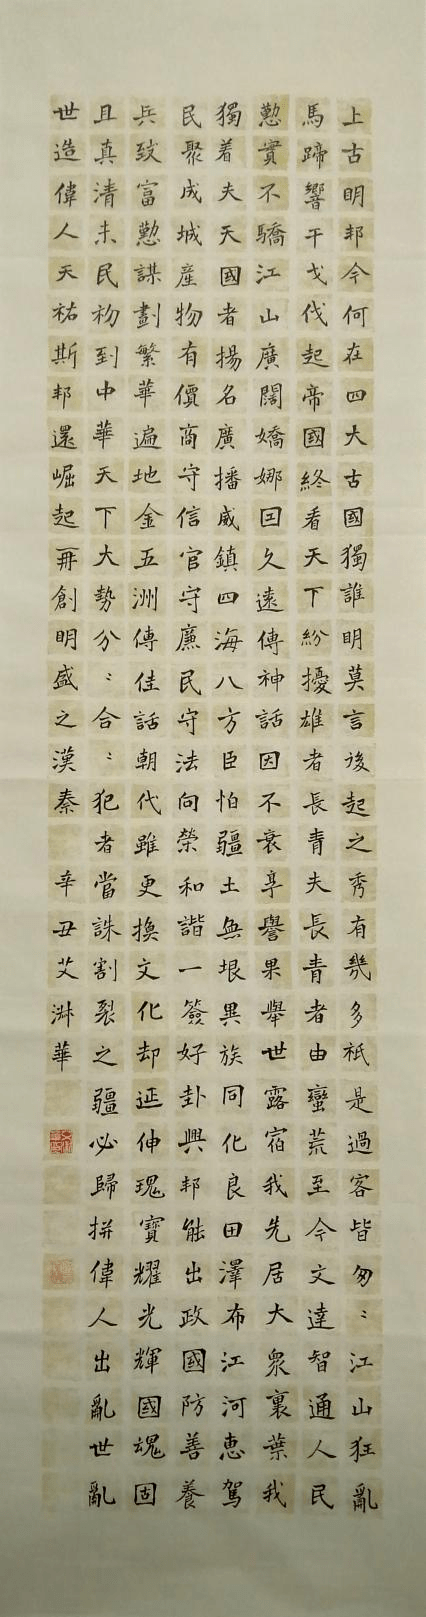 上古明邦今何在四大古國獨誰明莫言後起之秀有幾多祇是過客皆匆〻江山狂亂
馬蹄響干戈伐起帝國終看天下紛擾雄者長青夫長青者由蠻荒至今文達智通人民
懃實不驕江山廣闊嬌娜囯久遠傳神話因不衰享譽果舉世露宿我先居大衆裏葉我
獨着夫天國者揚名廣播威鎮四海八方臣怕疆土無垠異族同化良田澤布江河恵駕
民聚成城產物有價商守信官守廉民守法向榮和諧一簽好卦興邦能出政國防善養
兵致富懃謀劃繁華遍地金五洲傳佳話朝代雖更換文化却延伸瑰寶耀光輝國魂固
且真清未民初到中華天下大勢分〻合〻犯者當誅割裂之疆必歸拼偉人出亂世亂
世造偉人天祐斯邦還崛起再創明盛之漢秦 辛丑艾淋華